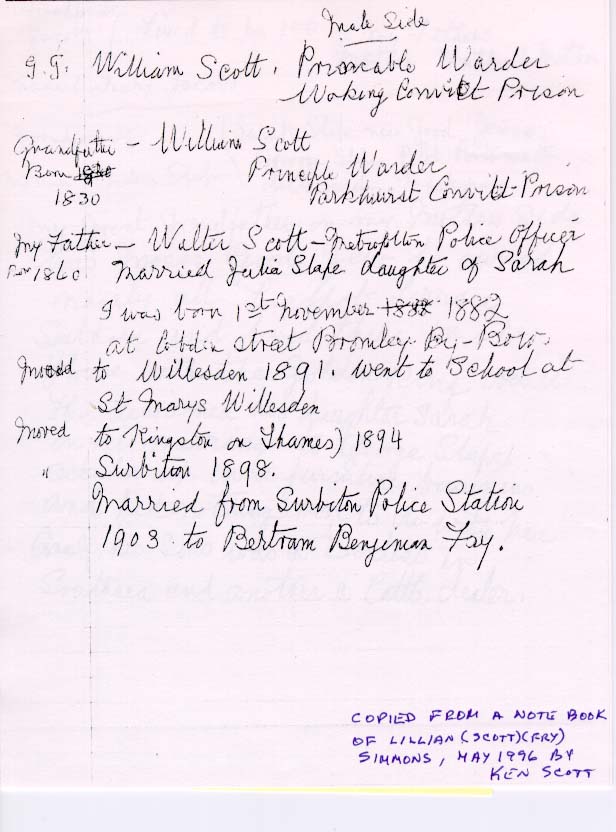 Male Side
G.F. William Scott. Princable Warder
Woking Convict Prison
Grandfather – William Scott
Born 1830 Principle Warder
1830 Parkhurst Convict Prison
My Father – Walter Scott – Metropolton Police Officer
Born 1860 Married Julia Slape daughter of Sarah
I was born 1st November 1882 1882
at Cobden street Bromley-By-Bow.
Moved to Willesden 1891. went to School at
St Marys Willesden
Moved to Kingston on Thames) 1894
" Surbiton 1898.
Married from Surbiton Police Station
1903 to Bertram Benjeman Fry.
COPIED FROM A NOTE BOOK
OF LILLIAN (SCOTT)(FRY)
SIMMONS, MAY 1996 BY
KEN SCOTT